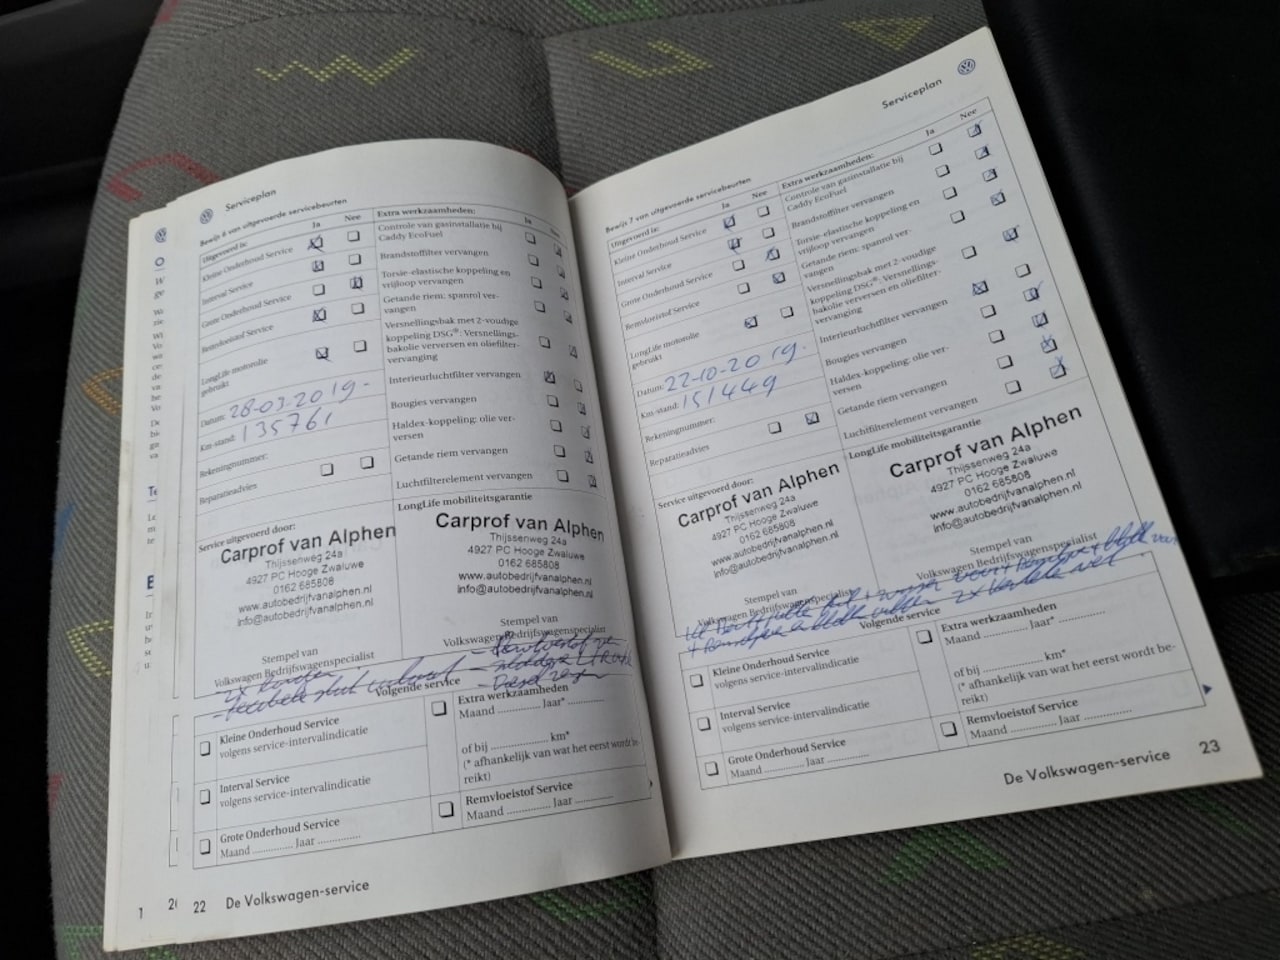 Serviceplan
Bewijs 6 van uitgevoerde servicebeurten
Uitgevoerd is:
Ja
Nee
Kleine Onderhoud Service
Interval Service
Grote Onderhoud Service
Remvloeistof Service
LongLife motorolie
gebruikt
Datum: 28-03-2019-
Km-stand: 135761
Rekeningnummer:
Reparatieadvies
Extra werkzaamheden:
Ja
Controle van gasinstallatie bij
Caddy EcoFuel
Brandstoffilter vervangen
Torsie-elastische koppeling en
vrijloop vervangen
Getande riem: spanrol ver-
vangen
Versnellingsbak met 2-voudige
koppeling DSG®: Versnellings-
bakolie verversen en oliefilter-
vervanging
Interieurluchtfilter vervangen
Bougies vervangen
Haldex-koppeling: olie ver-
versen
Getande riem vervangen
Luchtfilterelement vervangen
Service uitgevoerd door:
Carprof van Alphen
Thijssenweg 24a
4927 PC Hooge Zwaluwe
0162 685808
www.autobedrijfvanalphen.nl
info@autobedrijfvanalphen.nl
Stempel van
Volkswagen Bedrijfswagenspecialist
LongLife mobiliteitsgarantie
Carprof van Alphen
Thijssenweg 24a
4927 PC Hooge Zwaluwe
0162 685808
www.autobedrijfvanalphen.nl
info@autobedrijfvanalphen.nl
Stempel van
Volkswagen Bedrijfswagenspecialist
Volgende service
Kleine Onderhoud Service
volgens service-intervalindicatie
Interval Service
volgens service-intervalindicatie
Grote Onderhoud Service
Maand .............. Jaar ..............
Extra werkzaamheden
Maand .............. Jaar* ..............
of bij .............. km*
(* afhankelijk van wat het eerst wordt be-
reikt)
Remvloeistof Service
Maand .............. Jaar ..............
1
22 De Volkswagen-service
Serviceplan
Bewijs 7 van uitgevoerde servicebeurten
Uitgevoerd is:
Ja
Nee
Kleine Onderhoud Service
Interval Service
Grote Onderhoud Service
Remvloeistof Service
LongLife motorolie
gebruikt
Datum: 22-10-2019.
Km-stand: 151449
Rekeningnummer:
Reparatieadvies
Extra werkzaamheden:
Ja
Nee
Controle van gasinstallatie bij
Caddy EcoFuel
Brandstoffilter vervangen
Torsie-elastische koppeling en
vrijloop vervangen
Getande riem: spanrol ver-
vangen
Versnellingsbak met 2-voudige
koppeling DSG®: Versnellings-
bakolie verversen en oliefilter-
vervanging
Interieurluchtfilter vervangen
Bougies vervangen
Haldex-koppeling: olie ver-
versen
Getande riem vervangen
Luchtfilterelement vervangen
Service uitgevoerd door:
Carprof van Alphen
Thijssenweg 24a
4927 PC Hooge Zwaluwe
0162 685808
www.autobedrijfvanalphen.nl
info@autobedrijfvanalphen.nl
Stempel van
Volkswagen Bedrijfswagenspecialist
LongLife mobiliteitsgarantie
Carprof van Alphen
Thijssenweg 24a
4927 PC Hooge Zwaluwe
0162 685808
www.autobedrijfvanalphen.nl
info@autobedrijfvanalphen.nl
Stempel van
Volkswagen Bedrijfswagenspecialist
Volgende service
Kleine Onderhoud Service
volgens service-intervalindicatie
Interval Service
volgens service-intervalindicatie
Grote Onderhoud Service
Maand .............. Jaar ..............
Extra werkzaamheden
Maand .............. Jaar* ..............
of bij .............. km*
(* afhankelijk van wat het eerst wordt be-
reikt)
Remvloeistof Service
Maand .............. Jaar ..............
De Volkswagen-service 23